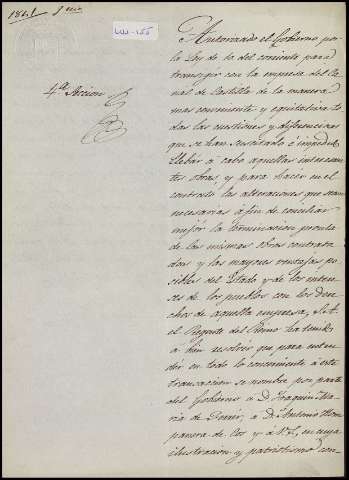 1841 Junio
4ª Seccion
Autorizado el Gobierno por
la Ley de 10 del corriente para
transigir con la empresa del Ca
nal de Castilla de la manera
mas conveniente y equitativa to
das las cuestiones y diferencias
que se han suscitado é impedido
llebar á cabo aquellas interesan
tes obras y para hacer en el
contrato las alteraciones que sean
necesarias á fin de conciliar
mejor la terminacion pronta
de las mismas obras contrata
das y las mayores ventajas po
sibles del Estado y de los intere
ses de los pueblos con los dere
chos de aquella empresa, S.A.
el Regente del Reino ha tenido
á bien resolver que para enten
der en todo lo concerniente á esta
transaccion se nombre por parte
del Gobierno á D. Joaquin Ma
ria de Ferrer, á D. Antonio
y á V.E., en cuya
ilustracion y patriotismo con-